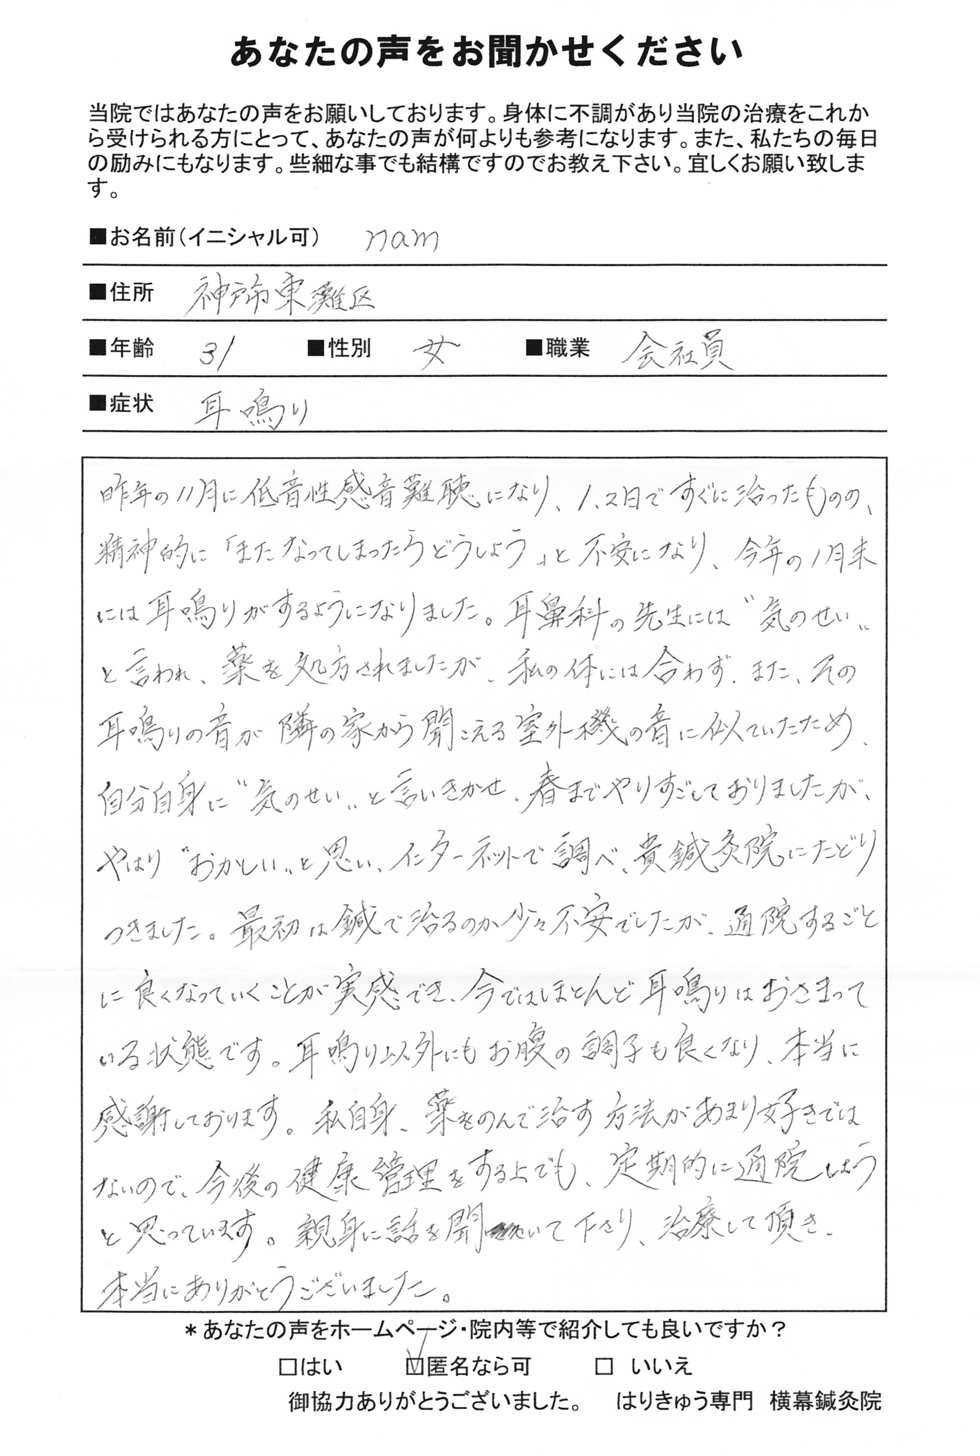 あなたの声をお聞かせください
当院ではあなたの声をお願いしております。身体に不調があり当院の治療をこれか
ら受けられる方にとって、あなたの声が何よりも参考になります。また、私たちの毎日
の励みにもなります。些細な事でも結構ですのでお教え下さい。宜しくお願い致しま
す。
■お名前(イニシャル可) nam
■住所 神戸市東灘区
■年齢 31 ■性別 女 ■職業 会社員
■症状 耳鳴り
昨年の11月に低音性感音難聴になり、1、2日ですぐに治ったものの、
精神的に「またなってしまったらどうしよう」と不安になり、今年の1月末
には耳鳴りがするようになりました。耳鼻科の先生には〝気のせい〟
と言われ、薬を処方されましたが、私の体には合わず、また、その
耳鳴りの音が隣の家から聞こえる室外機の音に似ていたため、
自分自身に〝気のせい〟と言いきかせ、春までやりすごしておりましたが、
やはり〝おかしい〟と思い、インターネットで調べ、貴鍼灸院にたどり
つきました。最初は鍼で治るのか少々不安でしたが、通院するごと
に良くなっていくことが実感でき、今ではほとんど耳鳴りはおさまって
いる状態です。耳鳴り以外にもお腹の調子も良くなり、本当に
感謝しております。私自身、薬をのんで治す方法があまり好きでは
ないので、今後の健康管理をする上でも、定期的に通院しよう
と思っています。親身に話を聞いて下さり、治療して頂き、
本当にありがとうございました。
＊あなたの声をホームページ・院内等で紹介しても良いですか？
□はい ☑匿名なら可 □ いいえ
御協力ありがとうございました。 はりきゅう専門 横幕鍼灸院